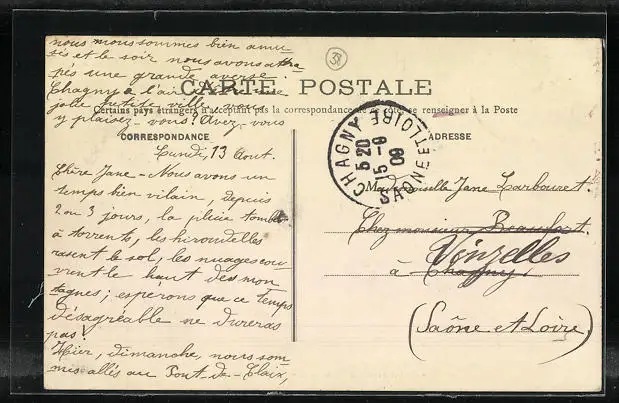 nous nous sommes bien amu-
sés et le soir nous avons attra-
pés une grande averse.
Chagny à l'air
jolie petite ville, vous
y plaisez-vous? Avez-vous
CARTE POSTALE
Certains pays étrangers n'acceptant pas la correspondance de ce côté, se renseigner à la Poste
CORRESPONDANCE
Lundi, 13 Aout.
Chère Jane - Nous avons un
temps bien vilain, depuis
2 ou 3 jours, la pluie tombe
à torrents, les hirondelles
rasent le sol, les nuages cou-
vrent le haut des mon
tagnes; espérons que ce temps
désagréable ne durera
pas!
Hier, dimanche, nous som
mes allés au Pont-de-Claix,
CHAGNY
5 20
15 - 8
09
SAONE ET LOIRE
ADRESSE
Mademoiselle Jane Larbouret
Chez monsieur Beaufort.
Vinzelles
à Chagny,
(Saône et Loire)